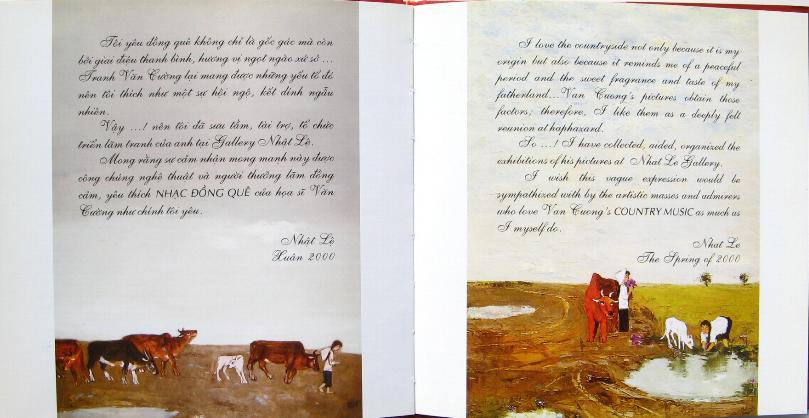 Tôi yêu đồng quê không chỉ là gốc gác mà còn
bởi giai điệu thanh bình, hương vị ngọt ngào xứ sở ...
Tranh Văn Cường lại mang được những yếu tố đó
nên tôi thích như một sự hội ngộ, kết dính ngẫu
nhiên.
Vậy ...! nên tôi đã sưu tầm, tài trợ, tổ chức
triển lãm tranh của anh tại Gallery Nhật Lệ.
Mong rằng sự cảm nhận mong manh này được
công chúng nghệ thuật và người thưởng lãm đồng
cảm, yêu thích NHẠC ĐỒNG QUÊ của họa sĩ Văn
Cường như chính tôi yêu.
Nhật Lệ
Xuân 2000
I love the countryside not only because it is my
origin but also because it reminds me of a peaceful
period and the sweet fragrance and taste of my
fatherland...Van Cuong's pictures obtain those
factors; therefore, I like them as a deeply fell
reunion at haphazard.
So ....! I have collected, aided, organized the
exhibitions of his pictures at Nhat Le Gallery.
I wish this vague expression would be
sympathized with by the artistic masses and admirers
who love Van Cuong's COUNTRY MUSIC as much as
I myself do.
Nhat Le
The Spring of 2000